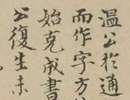 溫公於通
而作字方
始克成書
公復生未